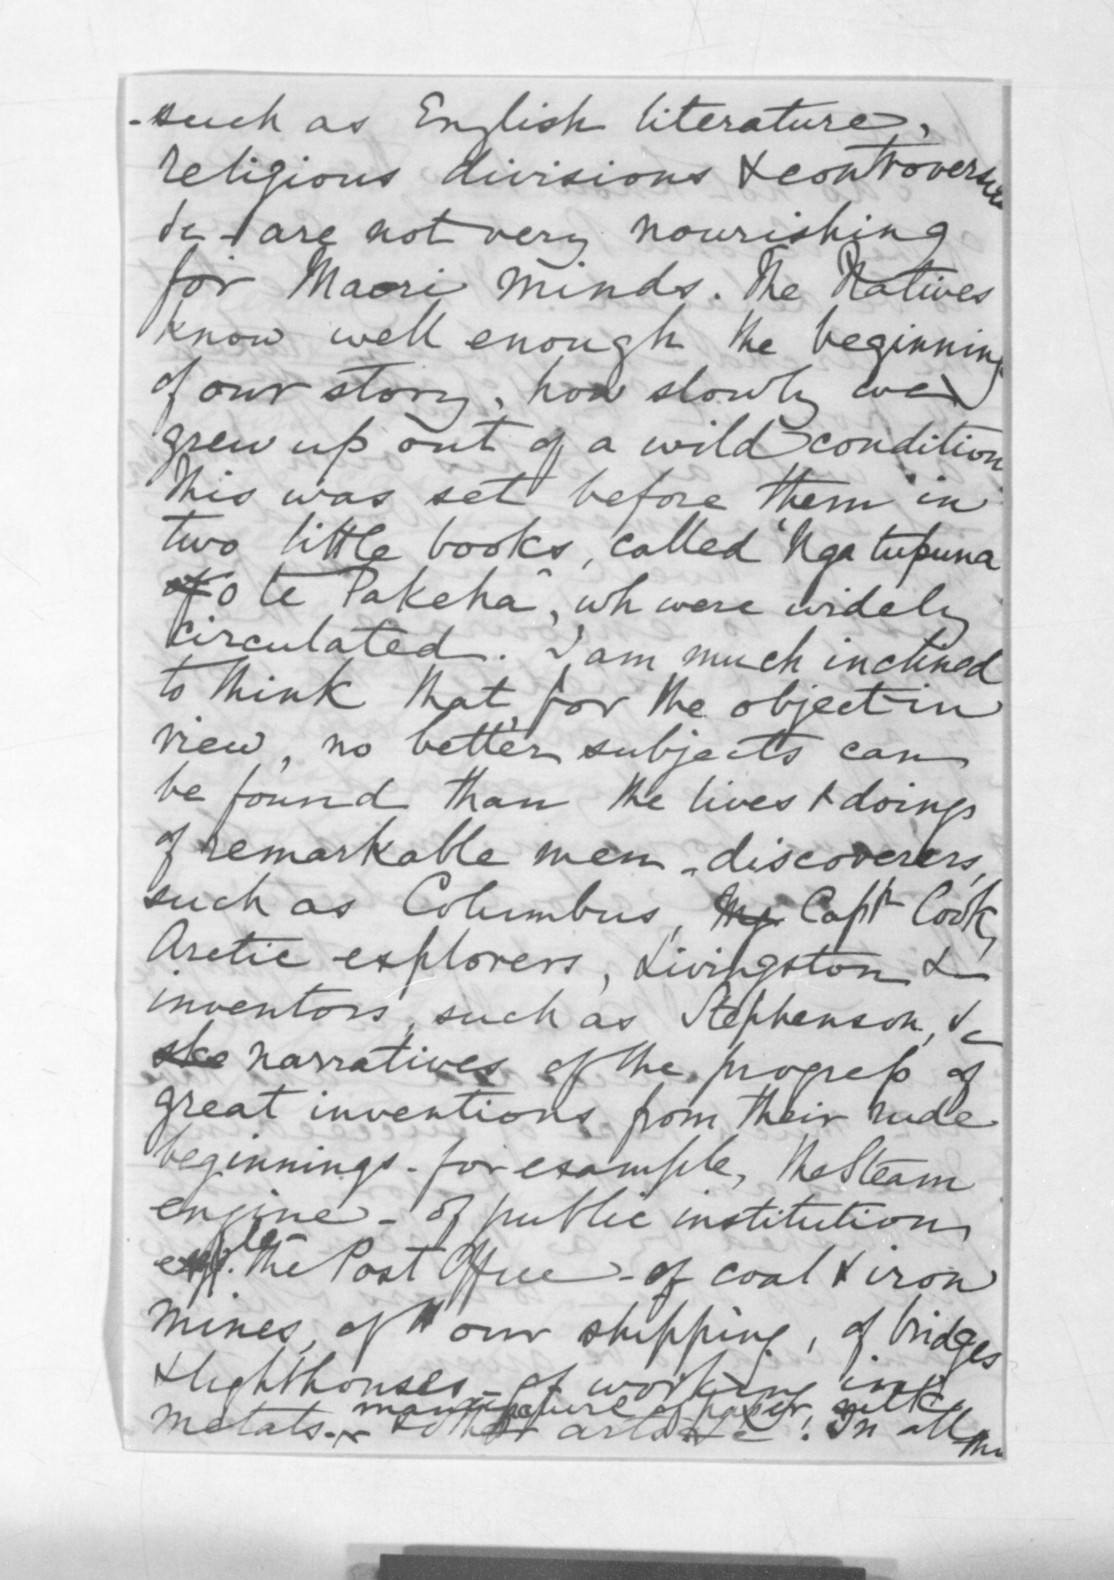 - such as English literature,
religious divisions & controversies
&c - are not very nourishing
for Maori minds. The Natives
know well enough the beginning
of our story, how slowly we
grew up out of a wild condition
This was set before them in
two little books, called "Nga tupuna
of o te Pakeha", wh were widely
circulated. I am much inclined
to think that, for the object in
view, no better subjects can
be found than the lives & doings
of remarkable men - discoverers,
such as Columbus, Capt Cook,
Arctic explorers, Livingston &
inventors, such as Stephenson, &c
ske narratives of the progress of
great inventions from their rude
beginnings - for example, the Steam
engine - of public institutions
the Post Office - of coal & iron
mines, of our shipping, of bridges
& lighthouses - of working in
manufacture of paper, silk
metals - & other arts &c. In all